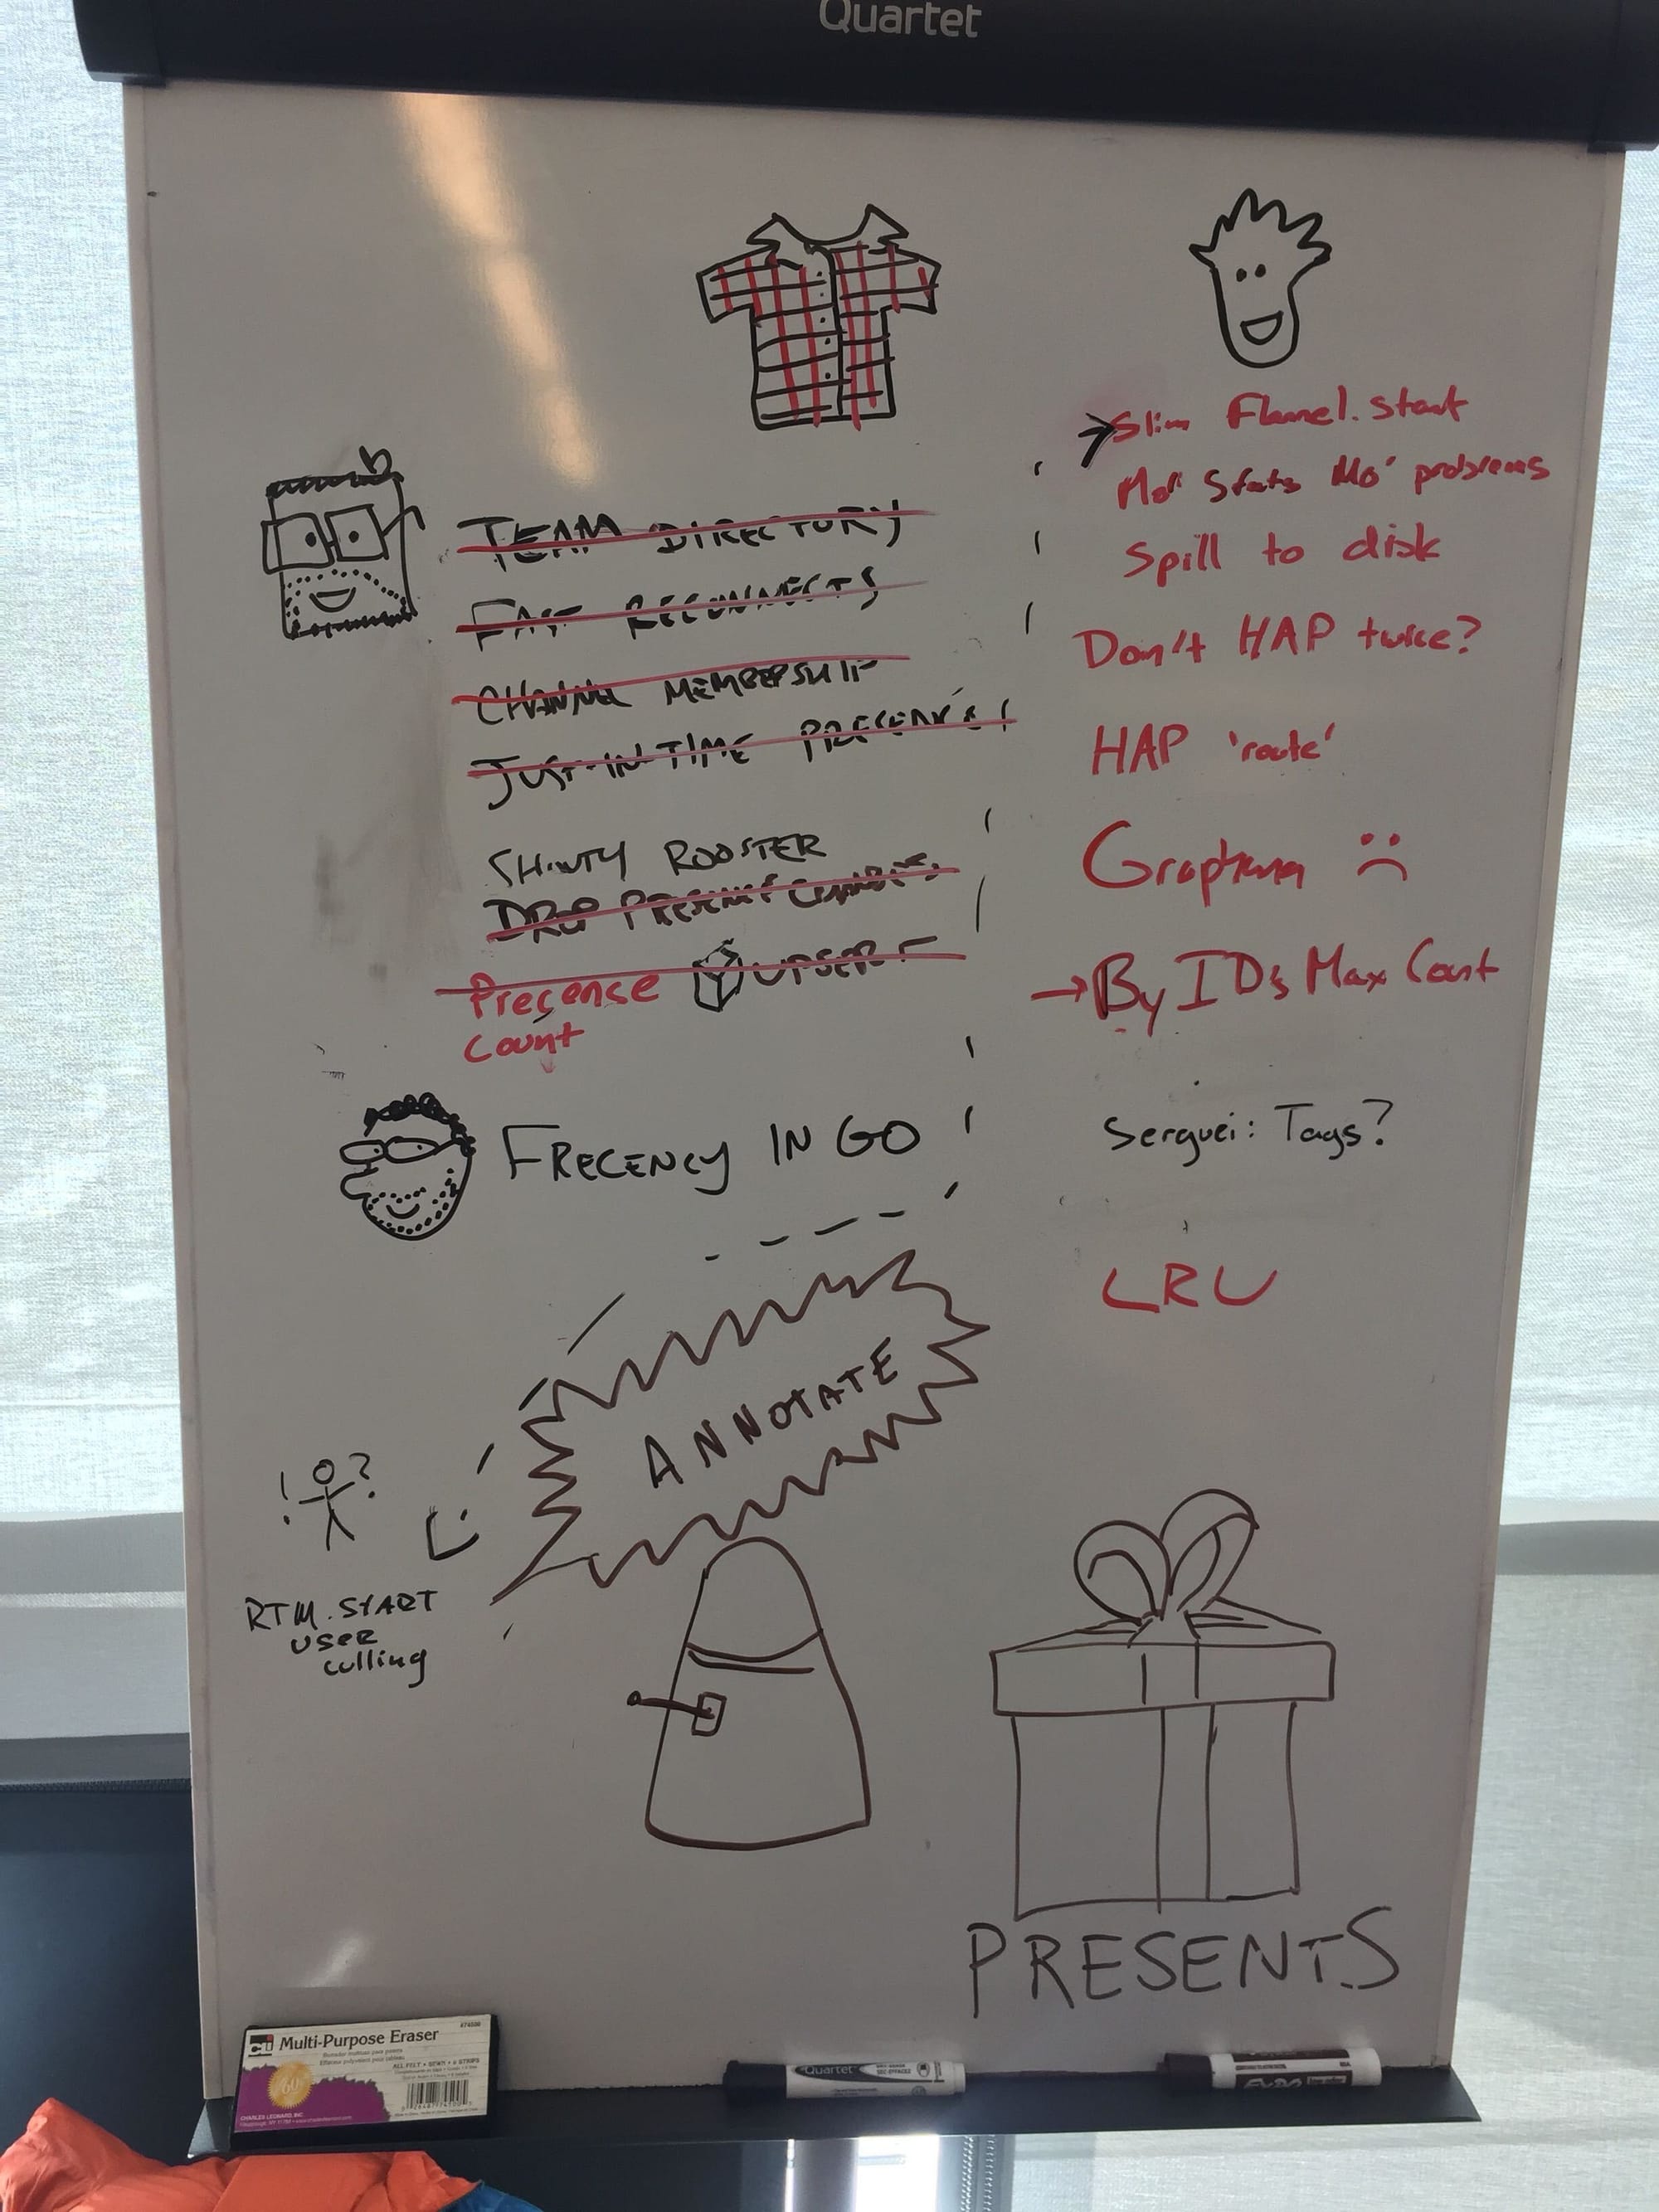 Quartet
TEAM DIRECTORY
FAST RECONNECTS
CHANNEL MEMBERSHIP
JUST-IN-TIME PRESENCE!
SHINTY ROOSTER
DROP PRESENCE CHANGES
Precense UPSERT
Count
FRECENCY IN GO
Slim Flannel.start
Mo' Stats Mo' problems
Spill to disk
Don't HAP twice?
HAP 'route'
Graphana :(
→ By IDs Max Count
Serguei: Tags?
LRU
ANNOTATE
! ?
RTM.START
USER
culling
PRESENTS
Multi-Purpose Eraser
#74500
ALL FELT
CHARLES LEONARD, INC
Quartet
EXPO